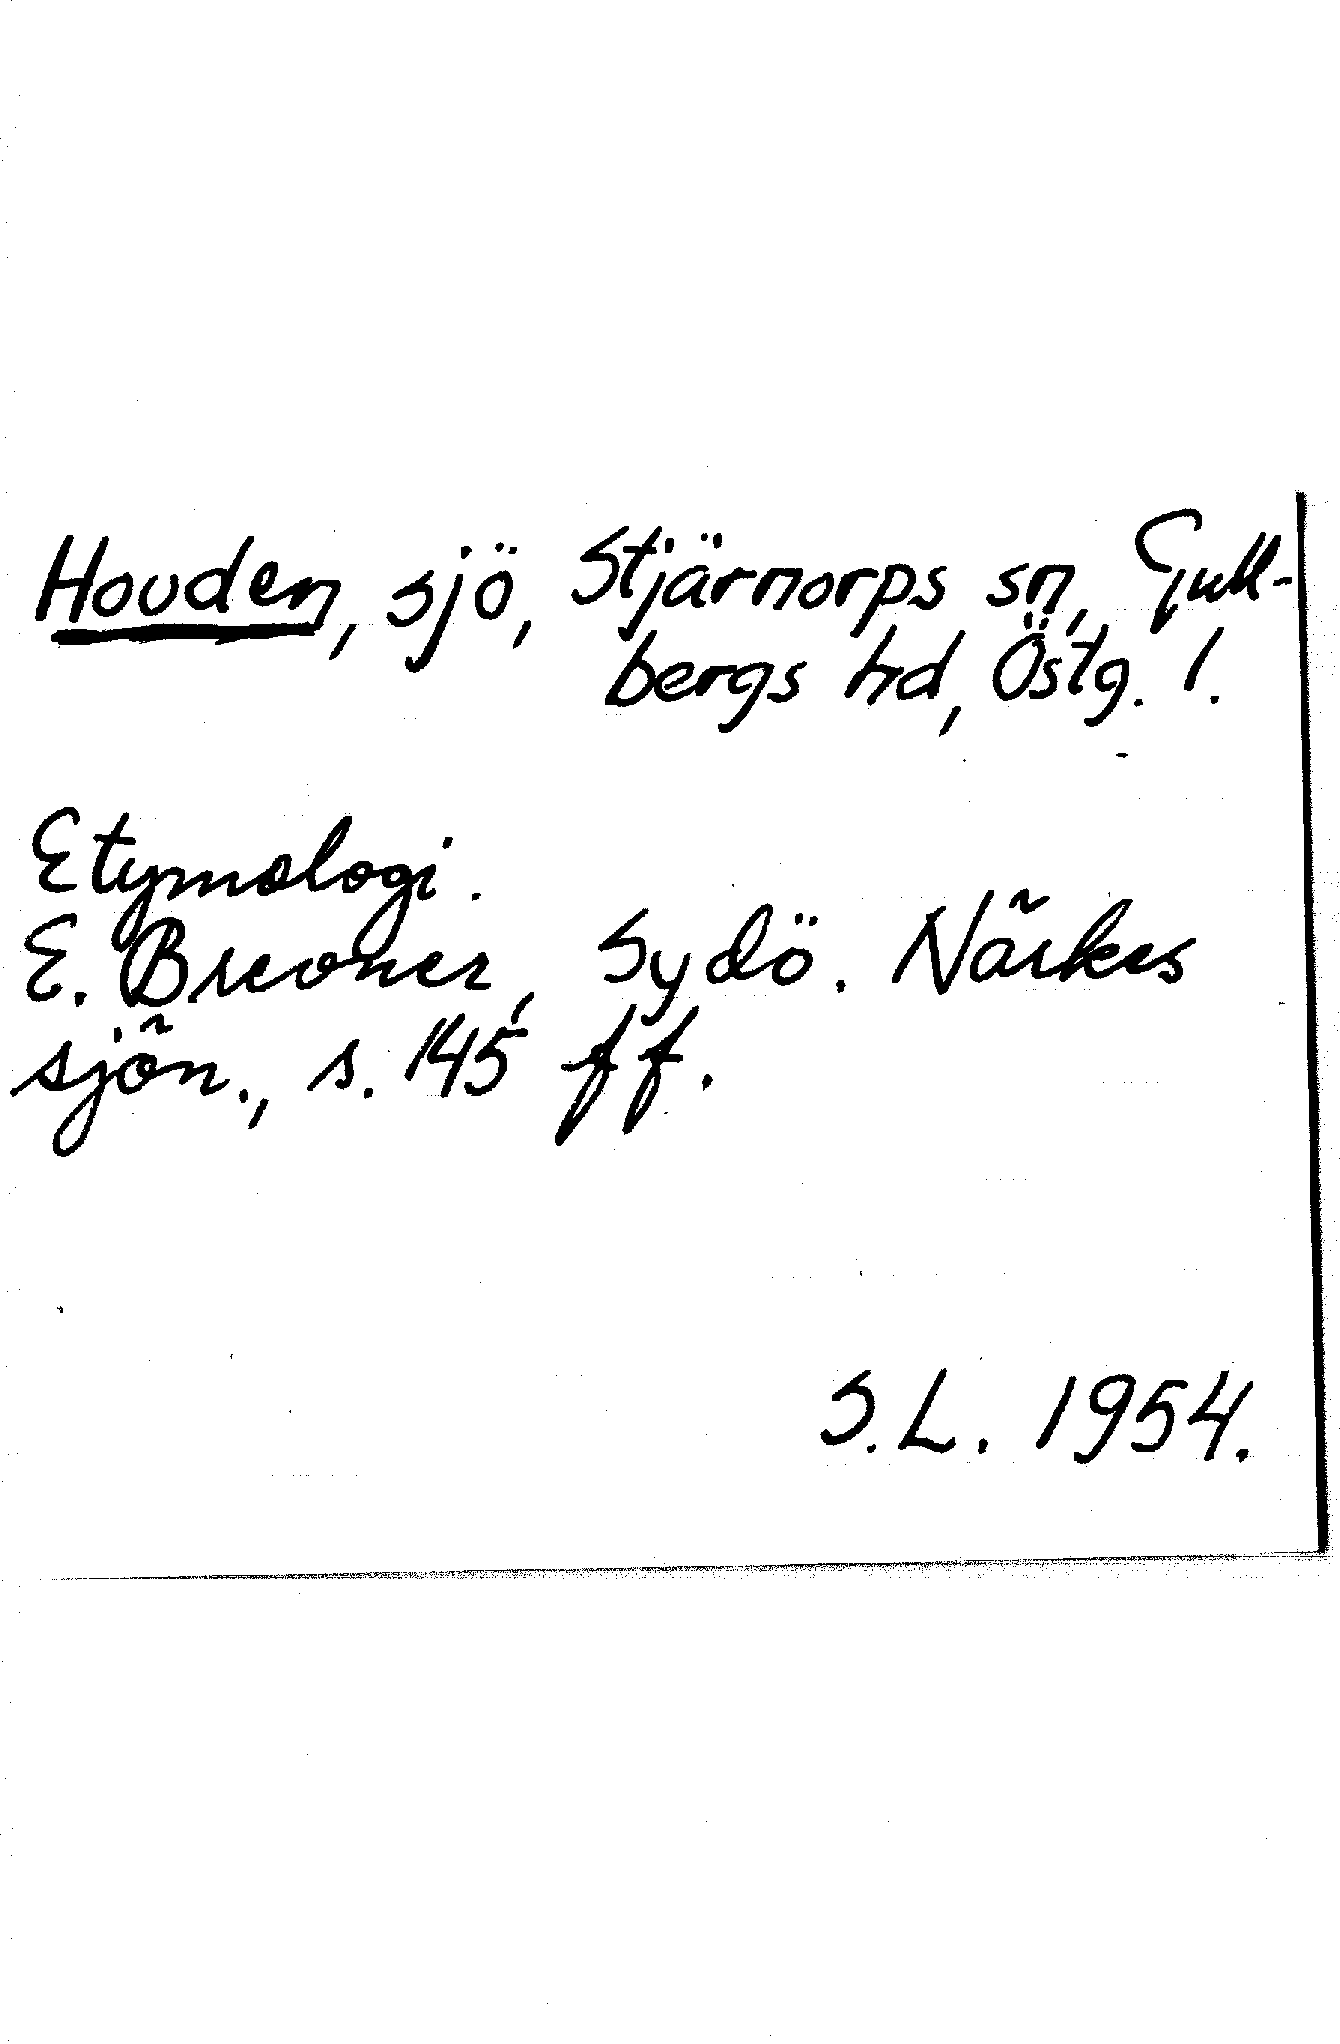 Houden, sjö, Stjärnorps sn, Gull-
bergs hd, Östg. l.
Etymologi.
E. Brevner, Sydö. Närkes
sjön., s. 145 ff.
S.L. 1954.